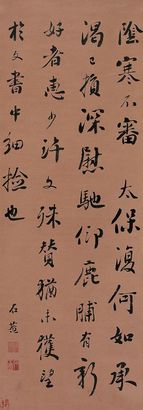 陰寒不審　太保復何如承
渴已損深慰馳仰鹿脯有新
好者惠少許文殊贊猶未獲望
於文書中細捡也
石菴